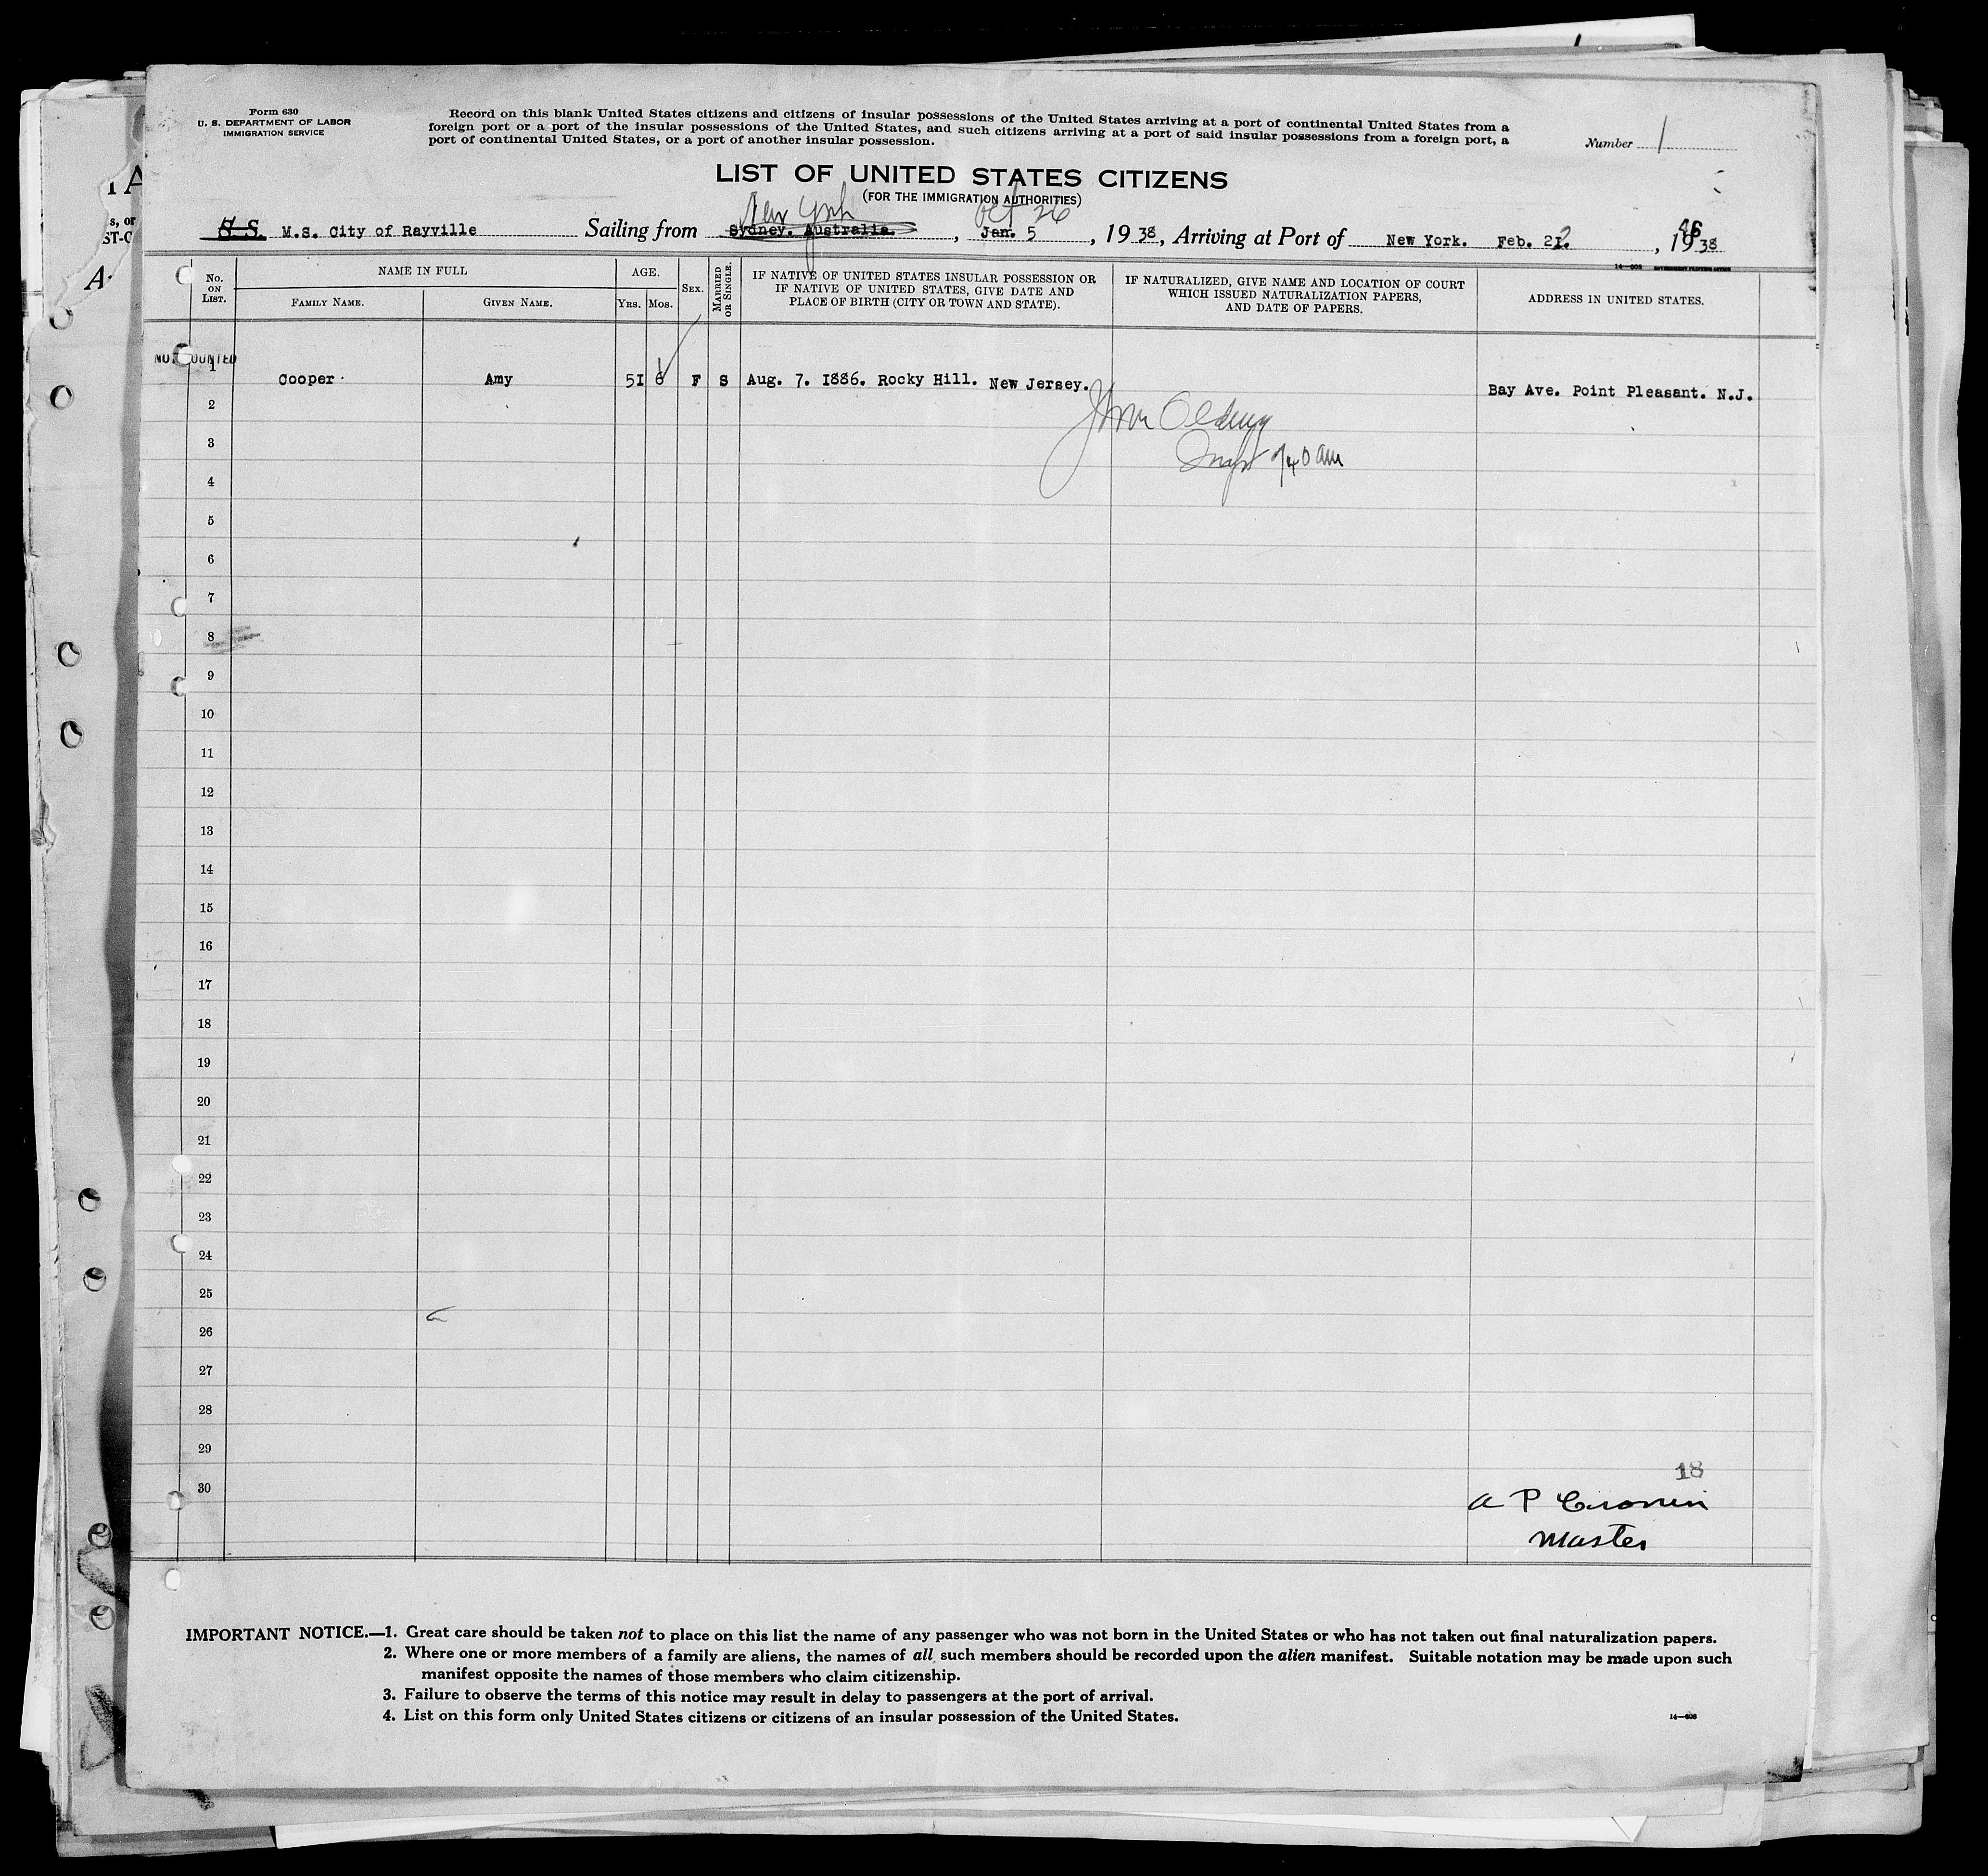 Form 630
U. S. DEPARTMENT OF LABOR
IMMIGRATION SERVICE
Record on this blank United States citizens and citizens of insular possessions of the United States arriving at a port of continental United States from a
foreign port or a port of the insular possessions of the United States, and such citizens arriving at a port of said insular possessions from a foreign port, a
port of continental United States, or a port of another insular possession.
Number 1
LIST OF UNITED STATES CITIZENS
(FOR THE IMMIGRATION AUTHORITIES)
New York Oct 26
S. S. M.S. City of Rayville Sailing from Sydney. Australia. , Jan. 5 , 19 38, Arriving at Port of New York. Feb. 22. , 19 38
46
14—608 GOVERNMENT PRINTING OFFICE
No. ON LIST.
NAME IN FULL
FAMILY NAME.
GIVEN NAME.
AGE.
YRS.
MOS.
SEX.
MARRIED OR SINGLE.
IF NATIVE OF UNITED STATES INSULAR POSSESSION OR
IF NATIVE OF UNITED STATES, GIVE DATE AND
PLACE OF BIRTH (CITY OR TOWN AND STATE).
IF NATURALIZED, GIVE NAME AND LOCATION OF COURT
WHICH ISSUED NATURALIZATION PAPERS,
AND DATE OF PAPERS.
ADDRESS IN UNITED STATES.
1
Cooper Amy 51 6 F S Aug. 7. 1886. Rocky Hill. New Jersey. Bay Ave. Point Pleasant. N.J.
2
3
4
5
6
7
8
9
10
11
12
13
14
15
16
17
18
19
20
21
22
23
24
25
26
27
28
29
18
30
A P Cronin
Master
IMPORTANT NOTICE.—1. Great care should be taken not to place on this list the name of any passenger who was not born in the United States or who has not taken out final naturalization papers.
2. Where one or more members of a family are aliens, the names of all such members should be recorded upon the alien manifest. Suitable notation may be made upon such
manifest opposite the names of those members who claim citizenship.
3. Failure to observe the terms of this notice may result in delay to passengers at the port of arrival.
4. List on this form only United States citizens or citizens of an insular possession of the United States.
14—608